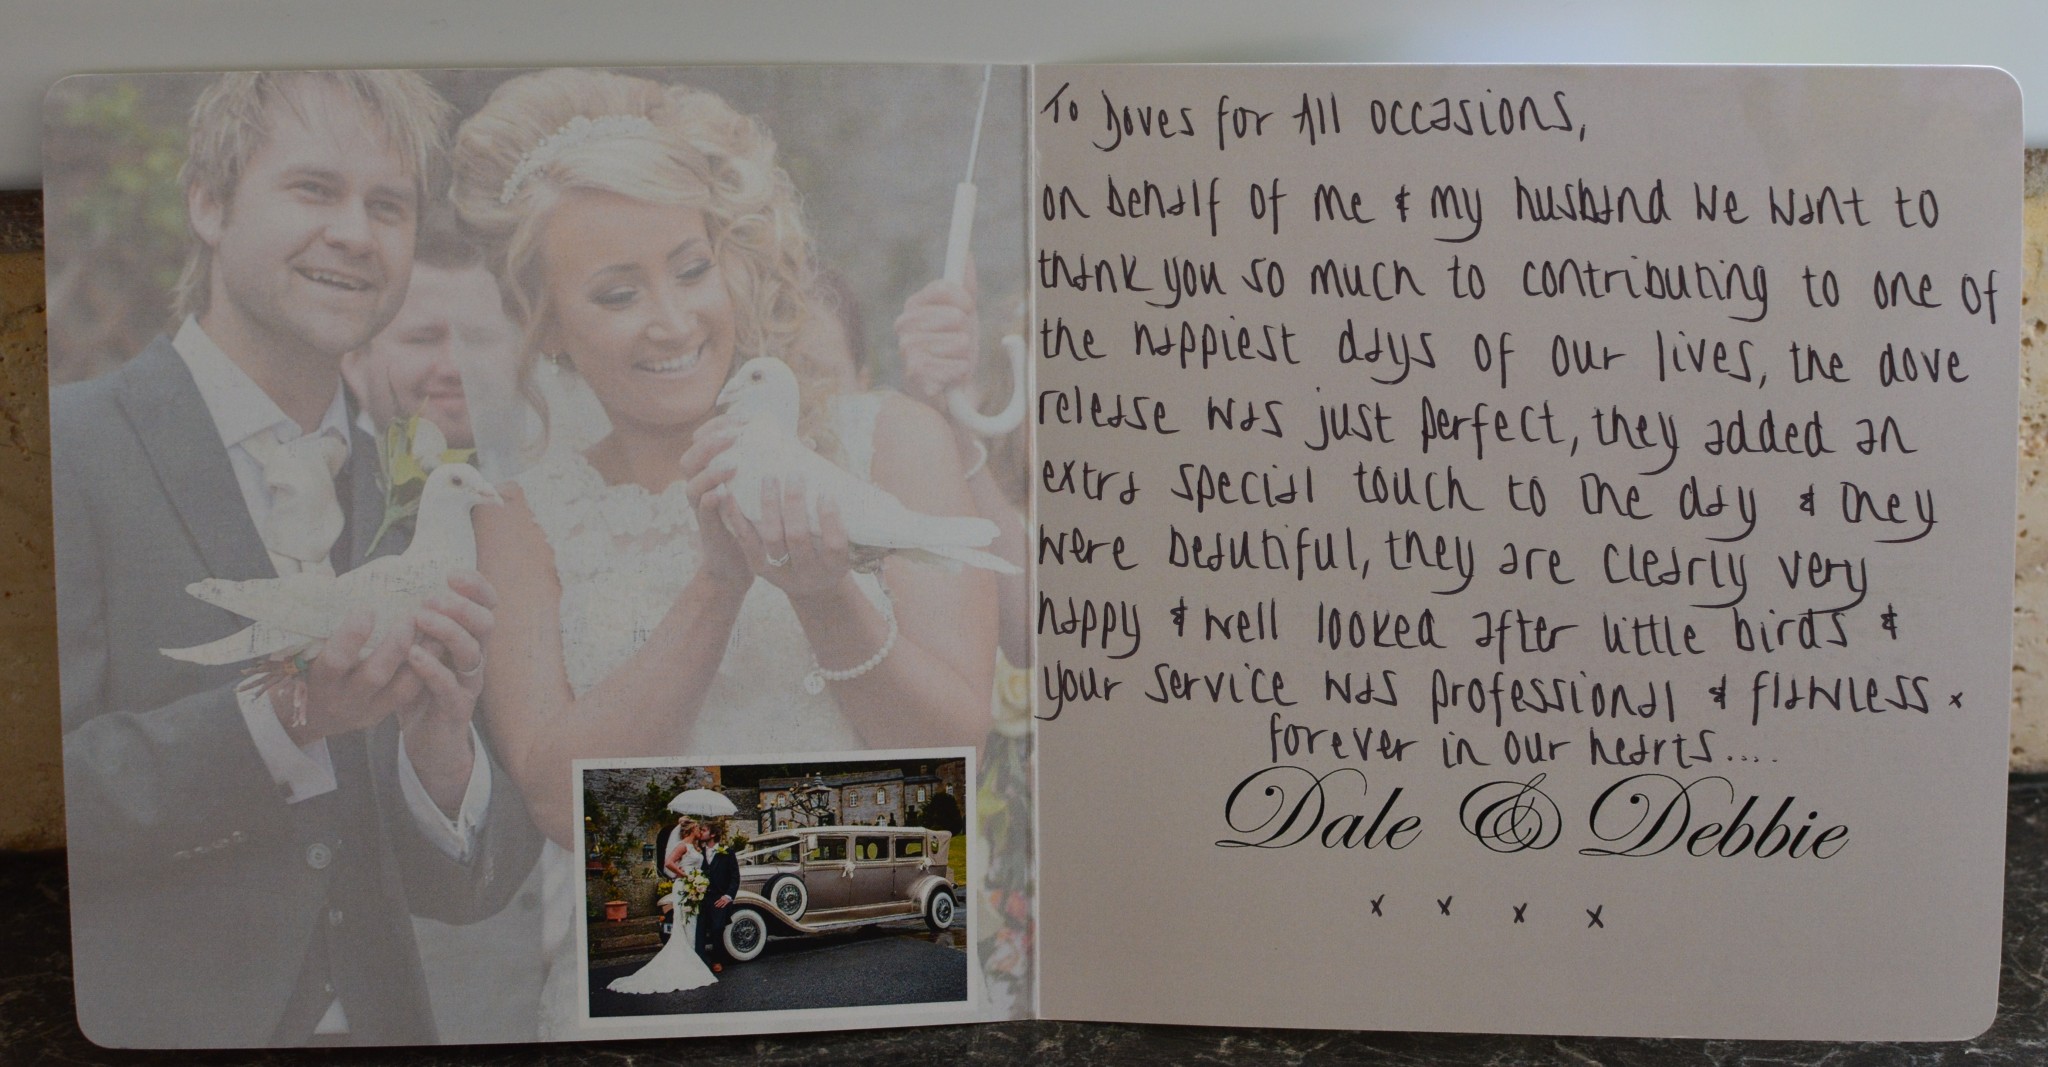 To Doves for All occasions,
on behalf of me & my husband we want to
thank you so much to contributing to one of
the happiest days of our lives, the dove
release was just perfect, they added an
extra special touch to the day & they
were beautiful, they are clearly very
happy & well looked after little birds &
your service was professional & flawless x
forever in our hearts....
Dale & Debbie
x x x x